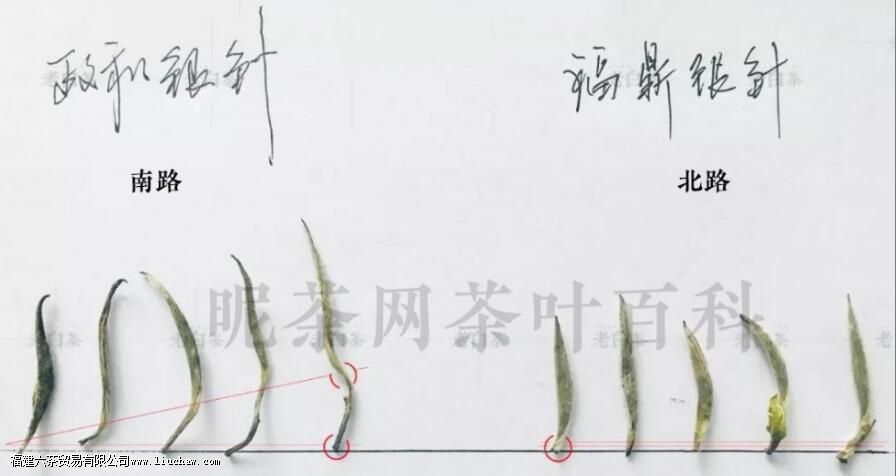 政和银针
福鼎银针
南路
北路
昵茶网茶叶百科
老白茶
老白茶
老白茶
老白茶
福建六茶贸易有限公司www.liuchaw.com